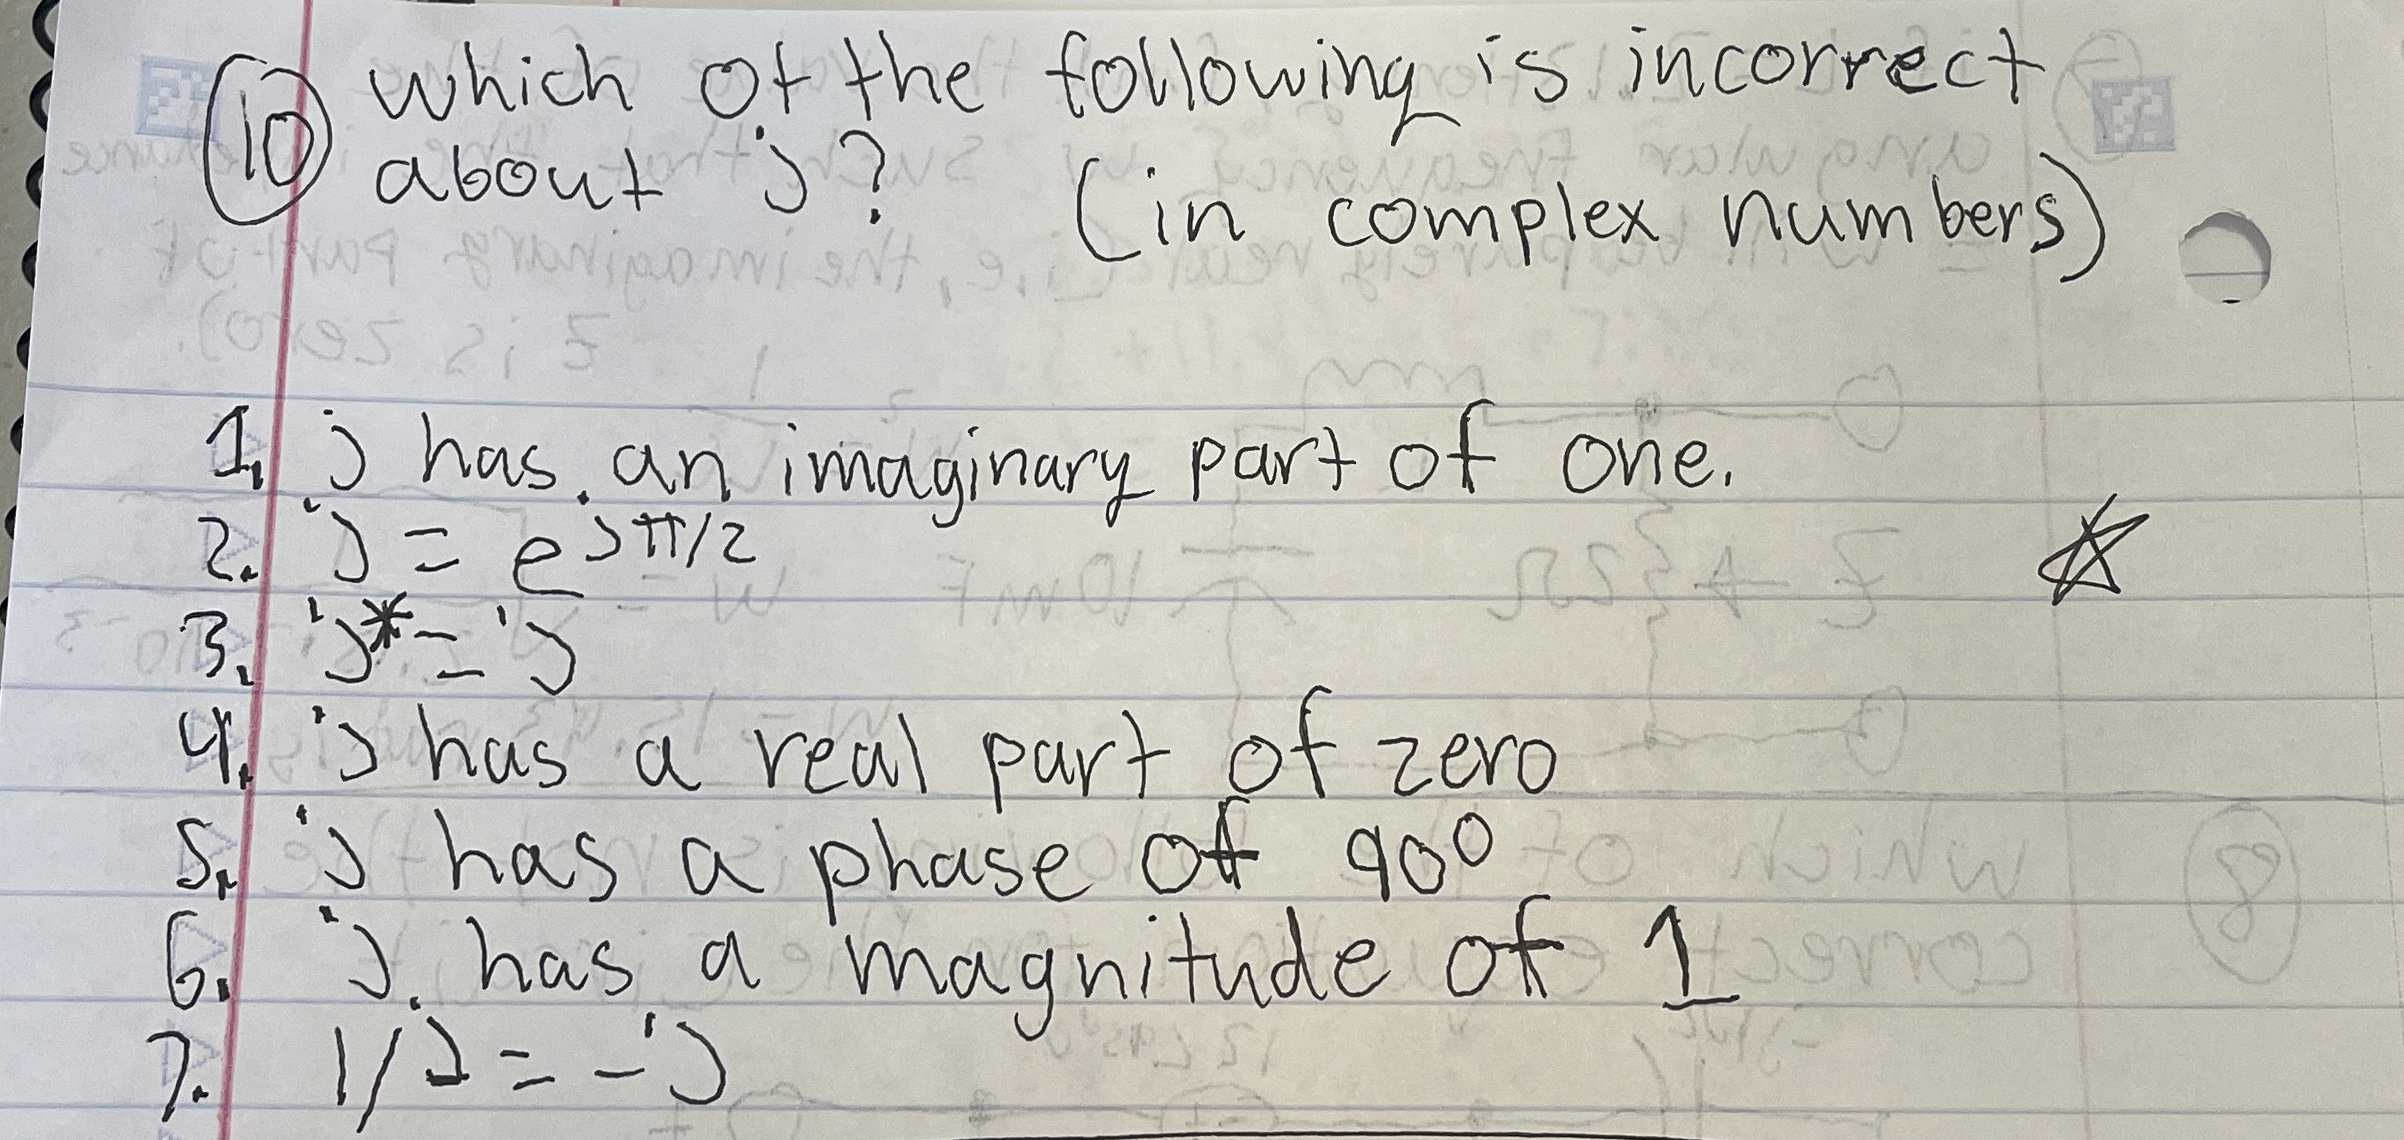 10 which of the following is incorrect
about j?
(in complex numbers)
1. j has an imaginary part of one.
2. j = e^jπ/2
3. j* = j
4. j has a real part of zero
5. j has a phase of 90°
6. j has a magnitude of 1
7. 1/j = -j